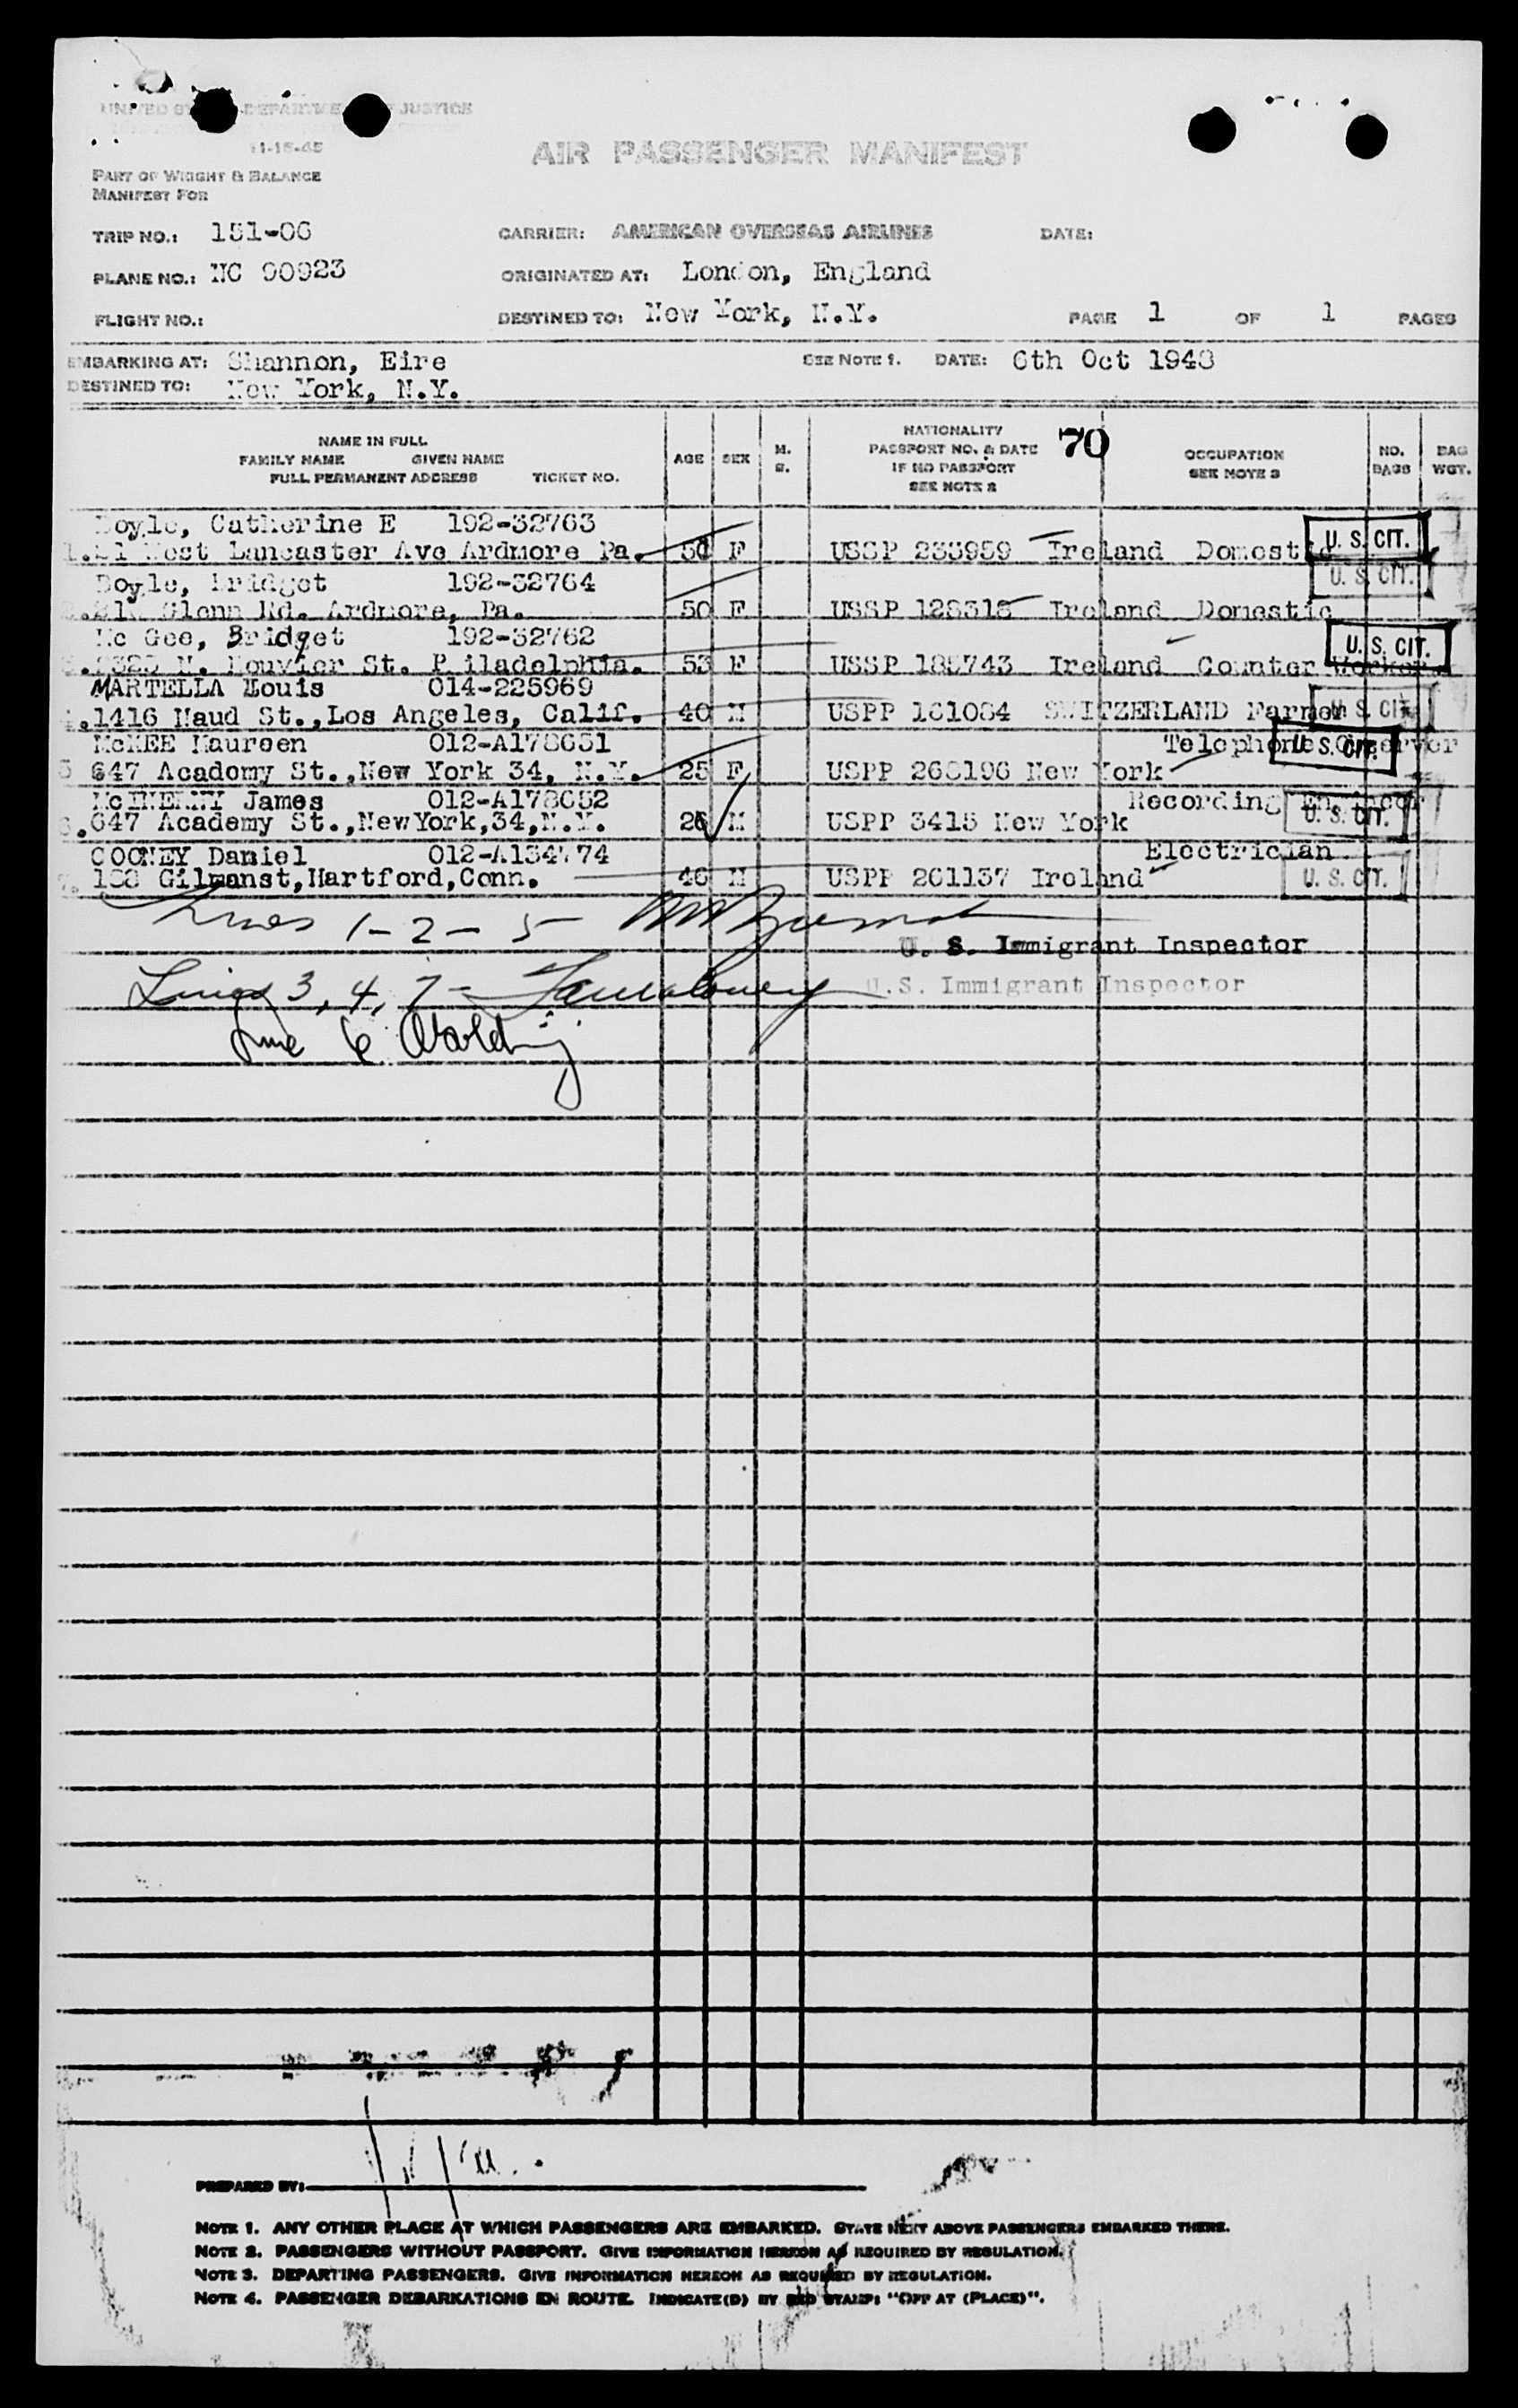 UNITED DEPARTME JUSTICE
11-15-45
AIR PASSENGER MANIFEST
PART OF WEIGHT & BALANCE
MANIFEST FOR
TRIP NO.: 151-06 CARRIER: AMERICAN OVERSEAS AIRLINES DATE:
PLANE NO.: NC 90923 ORIGINATED AT: London, England
FLIGHT NO.: DESTINED TO: New York, N.Y. PAGE 1 OF 1 PAGES
EMBARKING AT: Shannon, Eire SEE NOTE 1. DATE: 6th Oct 1948
DESTINED TO: New York, N.Y.
NAME IN FULL
FAMILY NAME GIVEN NAME
FULL PERMANENT ADDRESS TICKET NO.
AGE SEX M. S.
NATIONALITY
PASSPORT NO. & DATE
IF NO PASSPORT
SEE NOTE 2
70
OCCUPATION
SEE NOTE 3
NO. BAGS
BAG WGT.
Doyle, Catherine E 192-32763
1. West Lancaster Ave Ardmore Pa. F USSP 233959 Ireland Domestic U.S. CIT.
Doyle, Bridget 192-32764 U.S. CIT.
Glenn Rd. Ardmore, Pa. 50 F USSP Ireland Domestic
Mc Gee, Bridget 192-32762 U.S. CIT.
N. Bouvier St. Philadelphia. 53 F USSP Ireland Counter Worker
MARTELLA Louis 014-225969
4. 1416 Maud St., Los Angeles, Calif. 40 M USPP 161084 SWITZERLAND Farmer U.S. CIT.
McKEE Maureen 012-A178651 Telephone Observer U.S. CIT.
5 647 Academy St., New York 34, N.Y. 25 F USPP 268196 New York
McINERNY James 012-A178652 Recording Engineer
6. 647 Academy St., NewYork,34,N.Y. 26 M USPP 3415 New York U.S. CIT.
COONEY Daniel 012-A134774 Electrician
7. Gilmanst, Hartford, Conn. 46 M USPP 261137 Ireland U.S. CIT.
Lines 1-2-5
U. S. Immigrant Inspector
Lines 3, 4, 7-
U.S. Immigrant Inspector
Line 6
PREPARED BY:
NOTE 1. ANY OTHER PLACE AT WHICH PASSENGERS ARE EMBARKED. STATE NEXT ABOVE PASSENGERS EMBARKED THERE.
NOTE 2. PASSENGERS WITHOUT PASSPORT. GIVE INFORMATION HEREON AS REQUIRED BY REGULATION.
NOTE 3. DEPARTING PASSENGERS. GIVE INFORMATION HEREON AS REQUIRED BY REGULATION.
NOTE 4. PASSENGER DEBARKATIONS EN ROUTE. INDICATE(D) BY RED STAMP: "OFF AT (PLACE)".